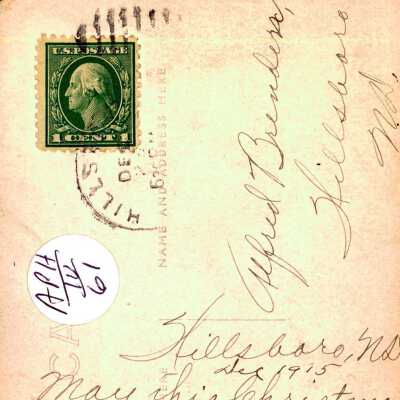 U.S. POSTAGE
1 CENT 1
HILLS
DEC
NAME AND ADDRESS HERE
Alfred Brenders,
Hillsboro
N.D.
APH
IV
61
CA
HERE
Hillsboro, ND
Dec 1915
May this Christm